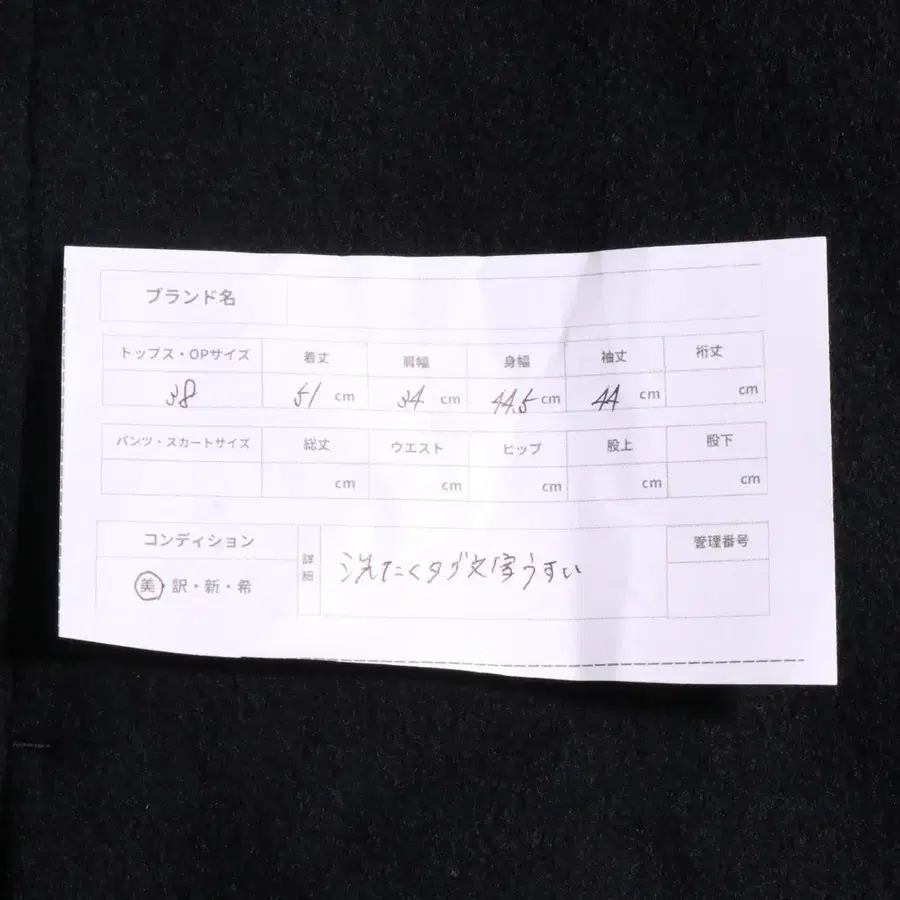 ブランド名
トップス・OPサイズ 着丈 肩幅 身幅 袖丈 裄丈
38 51 cm 34 cm 44.5 cm 44 cm cm
パンツ・スカートサイズ 総丈 ウエスト ヒップ 股上 股下
cm cm cm cm cm
コンディション 詳細 洗たくタグ文字うすい 管理番号
美・訳・新・希